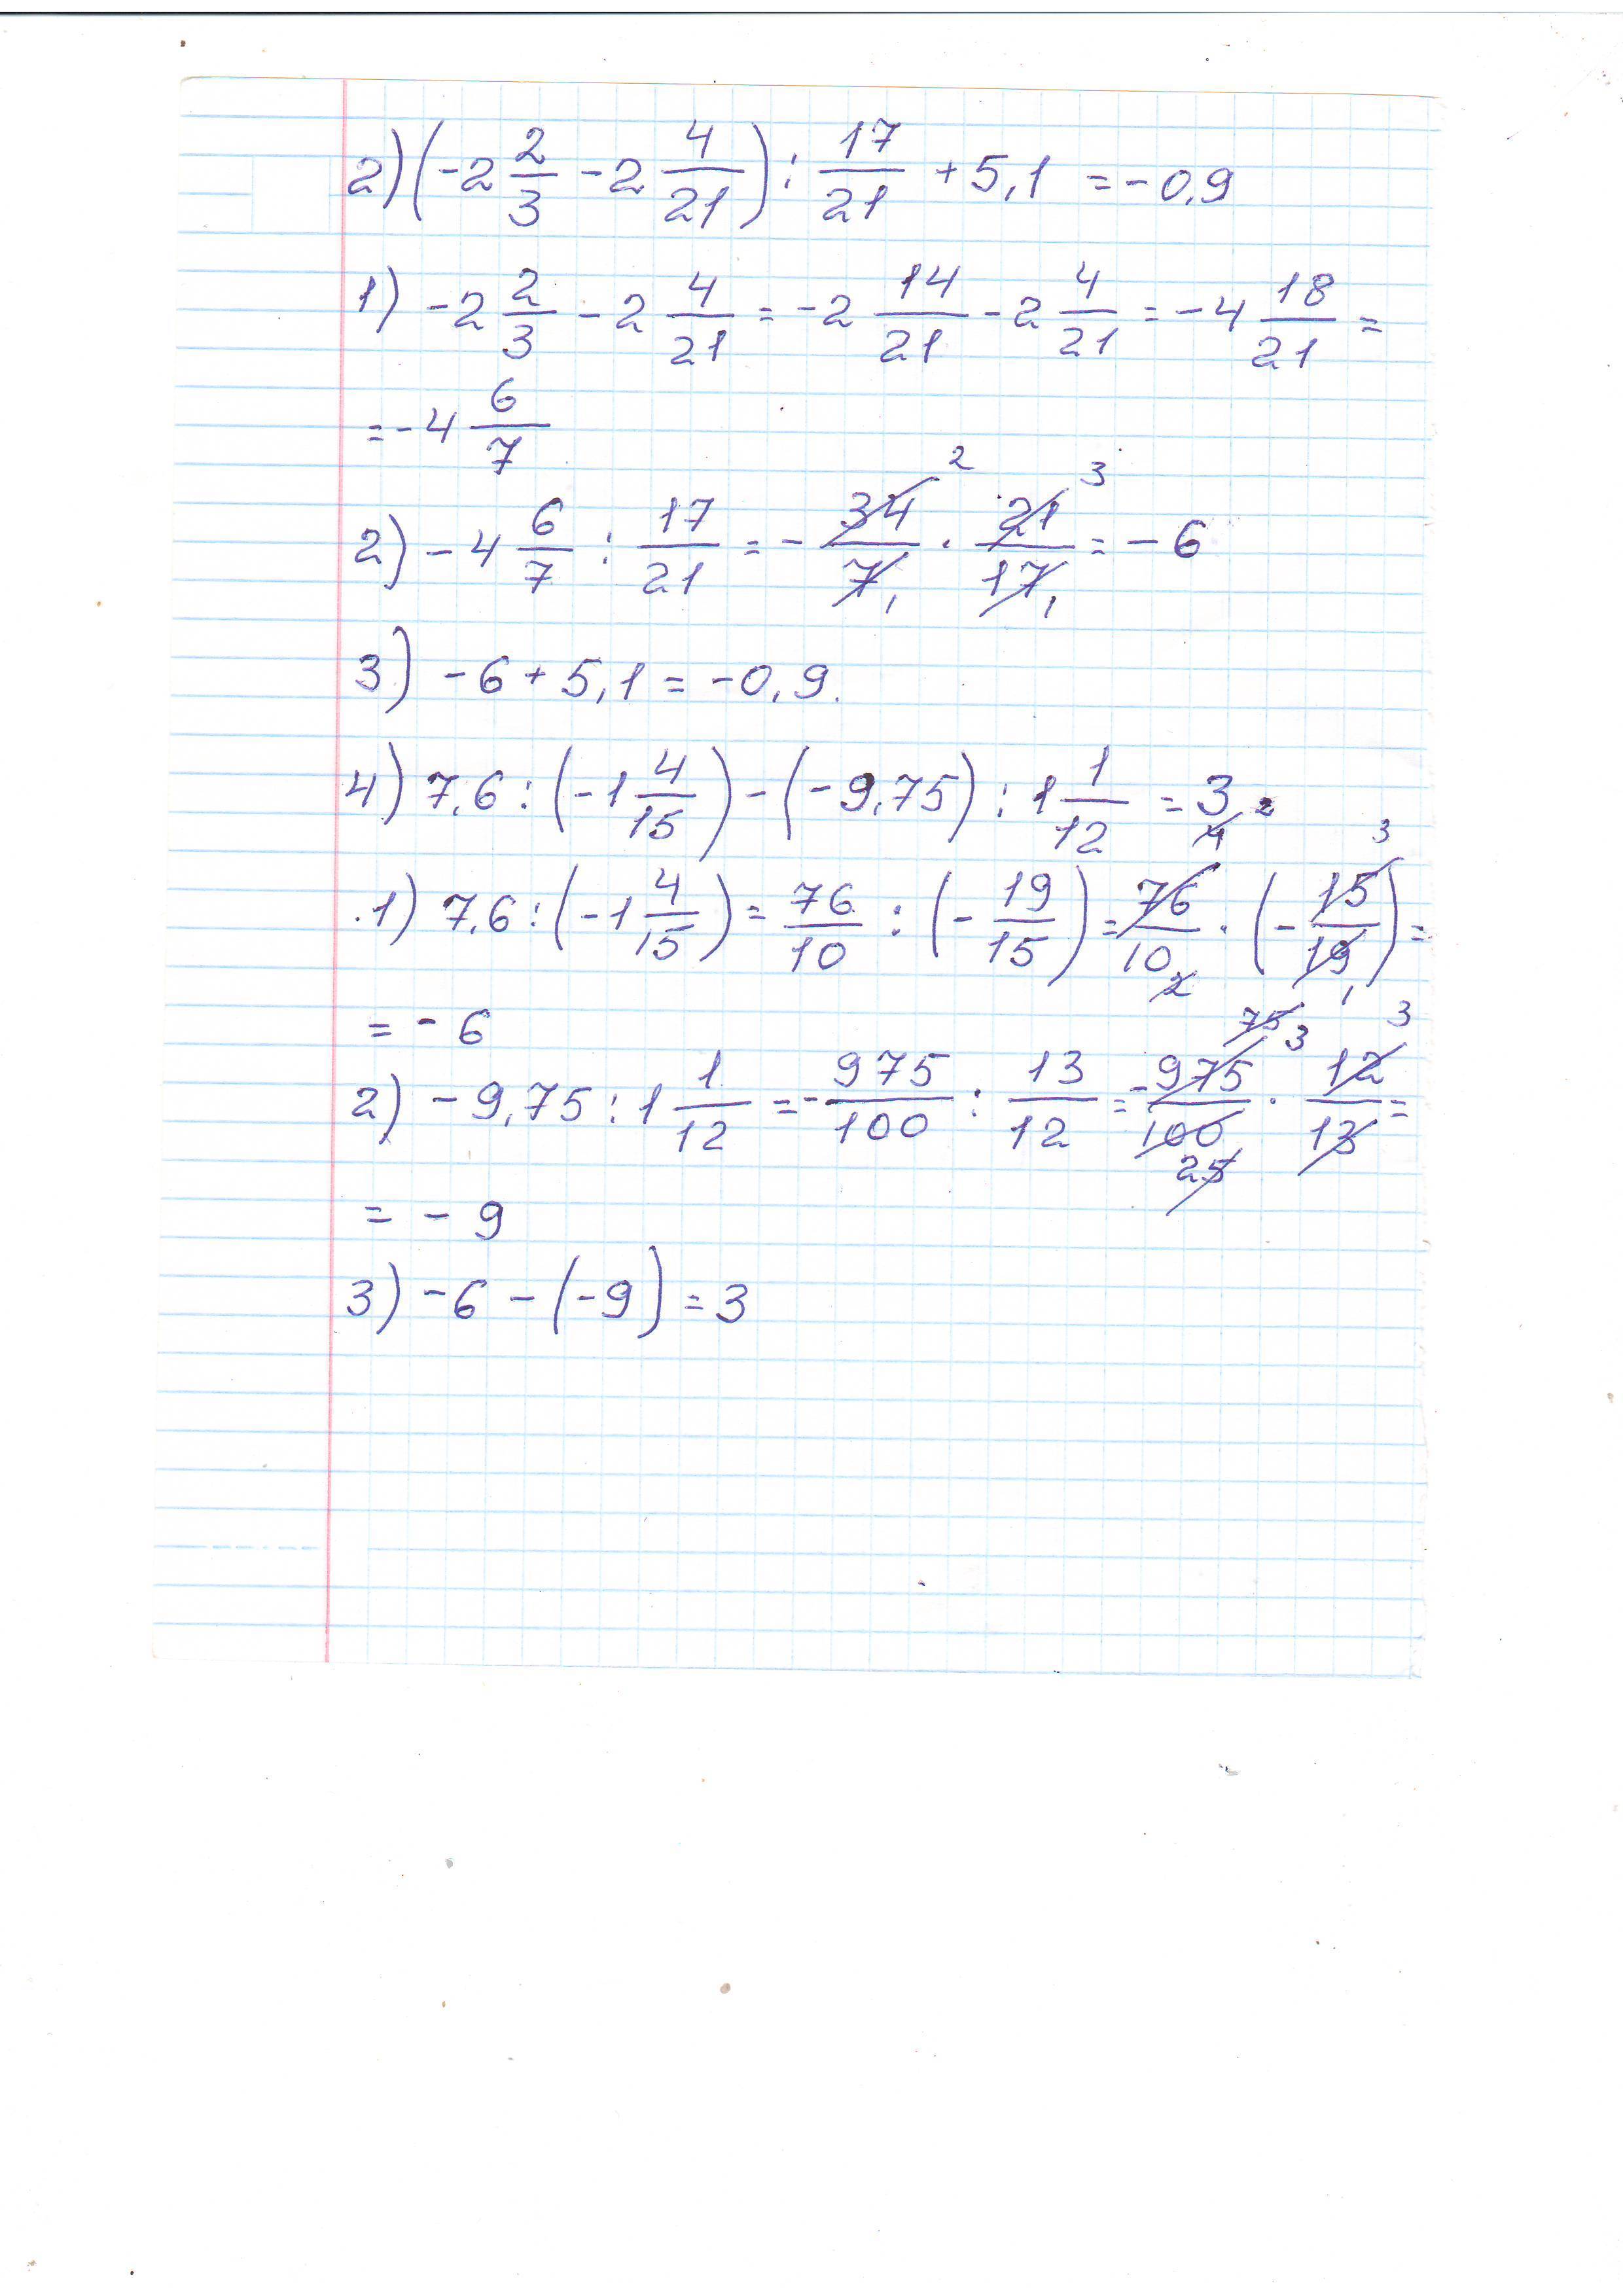 2) (-2 2/3 - 2 4/21) : 17/21 + 5,1 = -0,9
1) -2 2/3 - 2 4/21 = -2 14/21 - 2 4/21 = -4 18/21 =
= -4 6/7
2) -4 6/7 : 17/21 = - 34/7 · 21/17 = -6
2 3
1 1
3) -6 + 5,1 = -0,9.
4) 7,6 : (-1 4/15) - (-9,75) : 1 1/12 = 3
4 2 3
1) 7,6 : (-1 4/15) = 76/10 : (- 19/15) = 76/10 · (- 15/19) =
2 1
= -6
75 3 3
2) -9,75 : 1 1/12 = - 975/100 : 13/12 = - 975/100 · 12/13 =
25
= -9
3) -6 - (-9) = 3